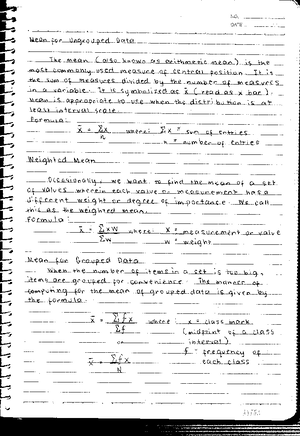 NO.
DATE
Mean for Ungrouped Data
The mean (also known as arithmetic mean) is the
most commonly used measure of central position. It is
the sum of measures divided by the number of measures
in a variable. It is symbolized as x̄ (read as x bar).
Mean is appropriate to use when the distribution is at
least interval scale.
Formula:
x̄ = Σx / n where: Σx = sum of entries
n = number of entries
Weighted Mean
Occasionally, we want to find the mean of a set
of values wherein each value or measurement has a
different weight or degree of importance. We call
this as the weighted mean.
Formula:
x̄ = ΣxW / ΣW where: X = measurement or value
W = weight
Mean for Grouped Data
When the number of items in a set is too big,
items are grouped for convenience. The manner of
computing for the mean of grouped data is given by
the formula:
x̄ = Σfx / Σf where: = class mark
(midpoint of a class
or interval)
f = frequency of
x̄ = Σfx / N each class